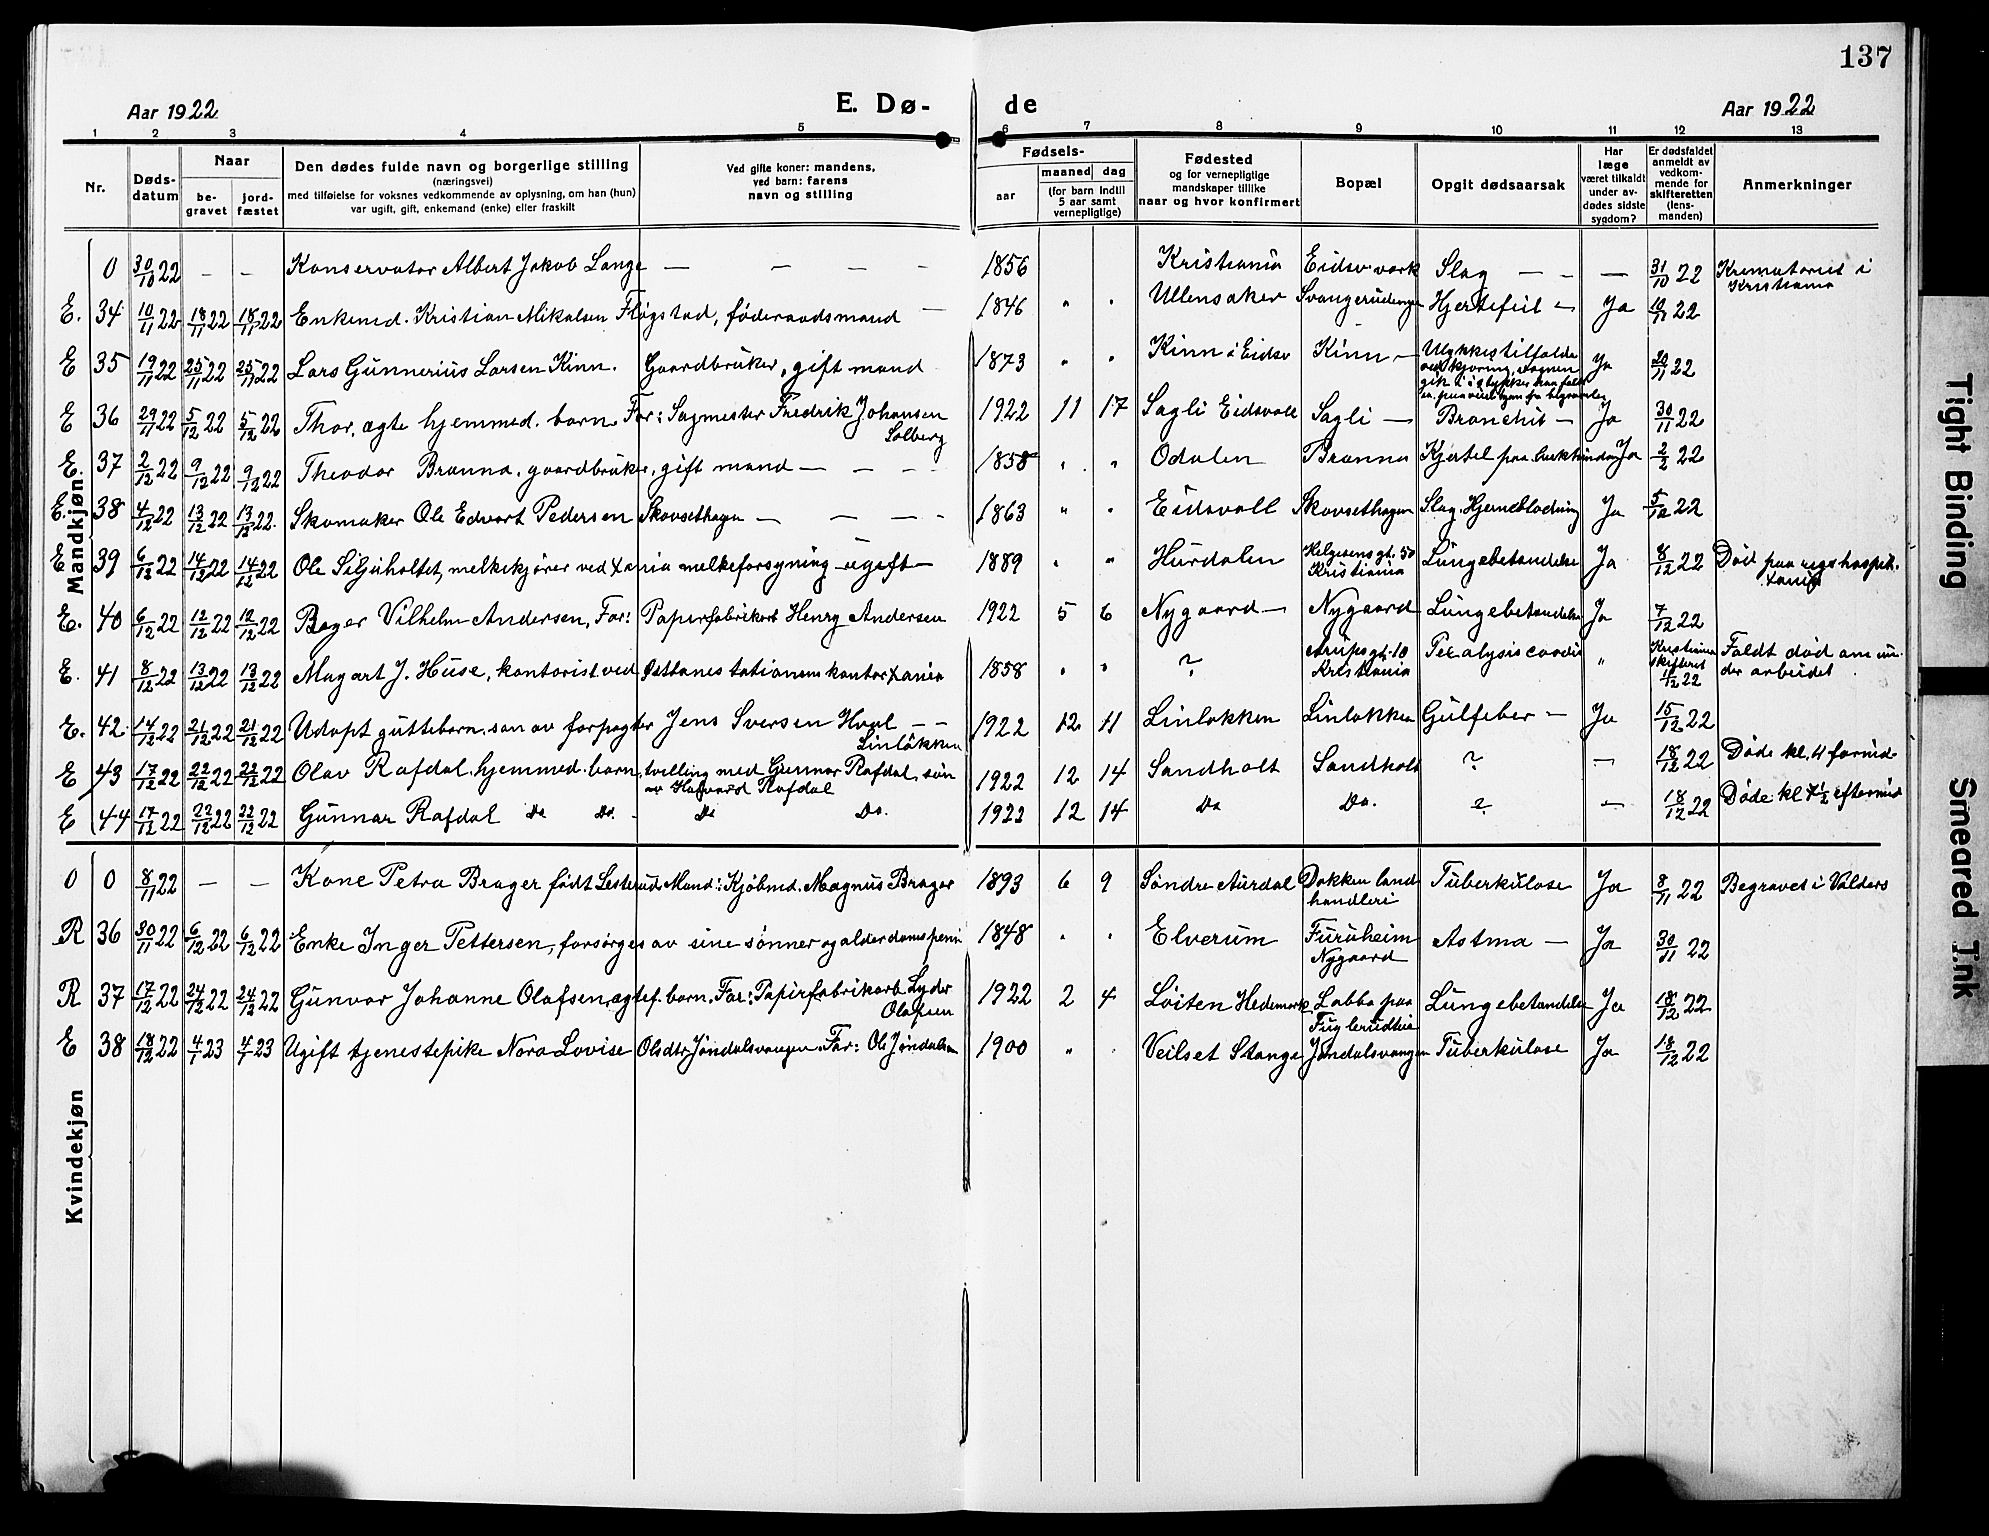 137
Aar 1922 E. Dø- de Aar 1922
1 2 3 4 5 6 7 8 9 10 11 12 13
Nr. Døds-datum Naar begravet jordfæstet Den dødes fulde navn og borgerlige stilling (næringsvei) med tilføielse for voksnes vedkommende av oplysning, om han (hun) var ugift, gift, enkemand (enke) eller fraskilt Ved gifte koner: mandens, ved barn: farens navn og stilling Fødsels- aar maaned dag (for barn indtil 5 aar samt vernepligtige) Fødested og for vernepligtige mandskaper tillike naar og hvor konfirmert Bopæl Opgit dødsaarsak Har læge været tilkaldt under avdødes sidste sygdom? Er dødsfaldet anmeldt av vedkommende for skifteretten (lensmanden) Anmerkninger
Mandkjøn
0 30/10 22 — — Konservator Albert Jakob Lange — — — — 1856 Kristiania Eidsv. verk Slag — — — 31/10 22 Krematoriet i Kristiania
E. 34 10/11 22 18/11 22 18/11 22 Enkemd. Kristian Mikalsen Fløgstad, føderaadsmand — 1846 " " Ullensaker Hjertefeil — Ja 10/11 22
E 35 19/11 22 25/11 22 25/11 22 Lars Gunnerius Larsen Kinn. Gaardbruker, gift mand 1873 " " Kinn i Eidsv Kinn — Ulykkestilfælde ved kjøring, vognen gik i Ja 20/11 22
E 36 29/11 22 5/12 22 5/12 22 Thor, ægte hjemmed. barn Far: Sagmester Fredrik Johansen Solberg 1922 11 17 Sagli Eidsvoll Sagli — Bronchit — Ja 30/11 22
E. 37 2/12 22 9/12 22 9/12 22 Theodor Brenna, gaardbruker, gift mand — — — — 1858 " " Odalen Brenna Kjertel paa Ja 2/2 22
E. 38 4/12 22 13/12 22 13/12 22. Skomaker Ole Edvart Pedersen Skovsethagen — — — — 1863 " " Eidsvoll Skovsethagen Slag. Hjerneblødning Ja 5/12 22
E 39 6/12 22 14/12 22 14/12 22 Ole Siljuholtet, melkekjører ved Xania melkeforsyning — ugift — 1889 " " Hurdalen Helgesens gt. 50 Kristiania Lungebetændelse Ja 8/12 22 Død paa rigshospit. Xania
E. 40 6/12 22 12/12 22 12/12 22 Roger Vilhelm Andersen, Far: Papirfabrikarb Henry Andersen 1922 5 6 Nygaard — Nygaard Lungebetændelse Ja 7/12 22
E. 41 8/12 22 13/12 22 13/12 22 Magart J. Huse, kontorist ved Østbanestationens kontor Xania 1858 " " ? Arups gt. 10 Kristiania Paralysis cordis " Kristiania skifteret 11/12 22 Faldt død om under arbeidet
E. 42. 14/12 22 21/12 22 21/12 22 Udøpt guttebarn. søn av forpagter Jens Iversen Hval — — Linløkken 1922 12 11 Linløkken Linløkken Gulfeber — Ja 15/12 22
E 43 17/12 22 22/12 22 22/12 22 Olav Rafdal. hjemmed. barn, tvilling med Gunnar Rafdal, søn av Halvard Rafdal 1922 12 14 Sandholt Sandholt ? — 18/12 22 Døde kl. 4 formid.
E 44 17/12 22 22/12 22 22/12 22 Gunnar Rafdal Do Do. Do Do. 1922 12 14 Do Do. ? — 18/12 22 Døde kl 7½ eftermid
Kvindekjøn
0 0 8/11 22 — — Kone Petra Brager født Lesterud Mand: Kjøbmd. Magnus Brager 1893 6 9 Søndre Aurdal Dokken landhandleri Tuberkulose Ja 8/11 22 Begravet i Valders
R 36 30/11 22 6/12 22 6/12 22 Enke Inger Pettersen, forsørges av sine sønner og alderdoms pens. 1848 " " Elverum Furuheim Nygaard Astma — Ja 30/11 22
R 37 17/12 22 24/12 22 24/12 22 Gunvor Johanne Olafsen, ægtef. barn. Far: Papirfabrikarb. Lyder Olafsen 1922 2 4 Løiten Hedemark Labbo paa Fuglerudteie Lungebetændelse Ja 18/12 22
E 38 18/12 22 4/1 23 4/1 23 Ugift tjenestepike Nora Lovise Olsdtr Jøndalsvangen. Far: Ole Jøndalen 1900 " " Veilset Stange Jøndalsvangen Tuberkulose Ja 18/12 22
Tight Binding
Smeared Ink